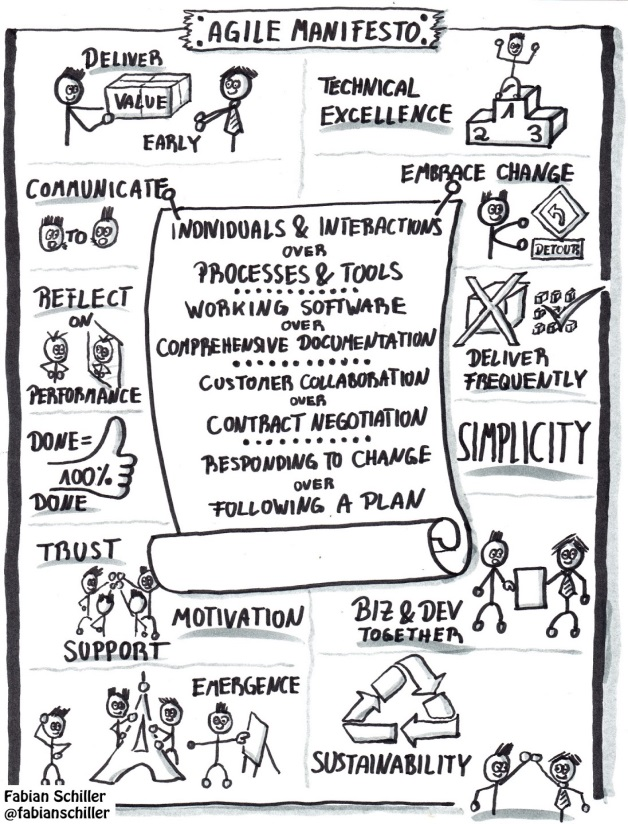 AGILE MANIFESTO
DELIVER
VALUE
EARLY
TECHNICAL
EXCELLENCE
1
2
3
COMMUNICATE
TO
EMBRACE CHANGE
DETOUR
INDIVIDUALS & INTERACTIONS
OVER
PROCESSES & TOOLS
WORKING SOFTWARE
OVER
COMPREHENSIVE DOCUMENTATION
CUSTOMER COLLABORATION
OVER
CONTRACT NEGOTIATION
RESPONDING TO CHANGE
OVER
FOLLOWING A PLAN
REFLECT
ON
PERFORMANCE
DELIVER
FREQUENTLY
DONE=
100%
DONE
SIMPLICITY
TRUST
SUPPORT
MOTIVATION
BIZ & DEV
TOGETHER
EMERGENCE
SUSTAINABILITY
Fabian Schiller
@fabianschiller